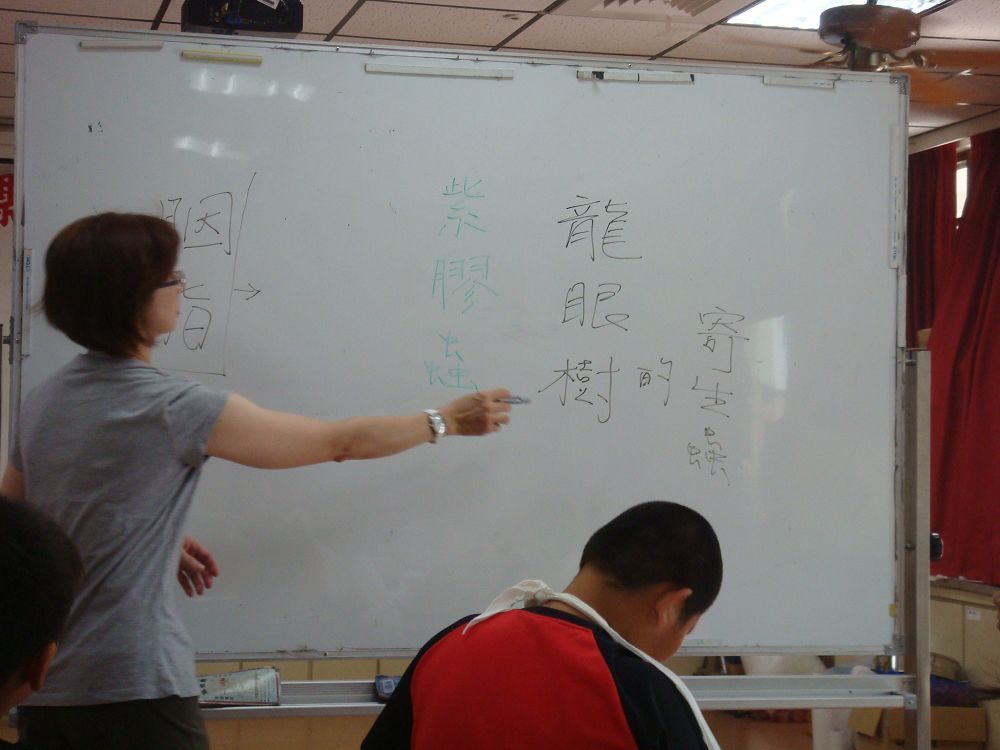 胭脂
→
紫膠蟲
龍眼樹
的
寄生蟲